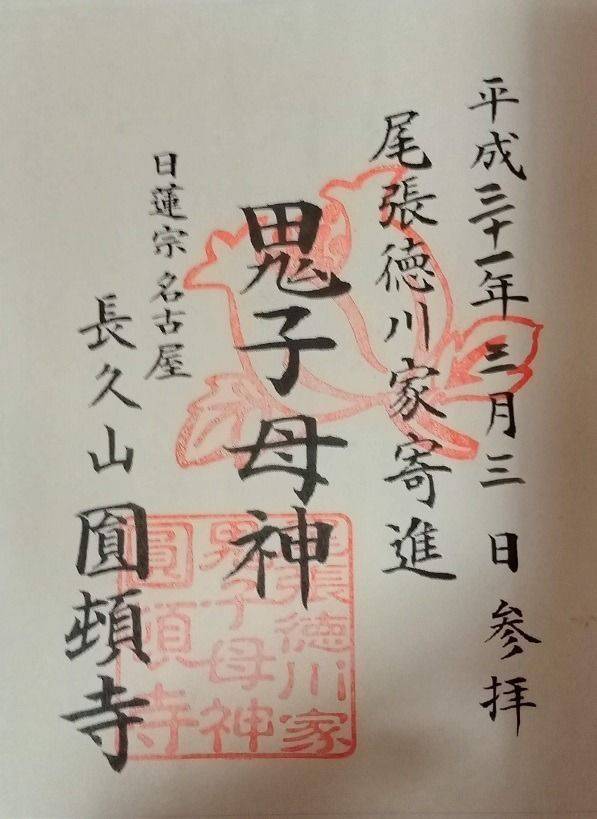 平成三十一年三月三日参拝
尾張徳川家寄進
鬼子母神
日蓮宗名古屋
長久山圓頓寺
尾張徳川家
鬼子母神
圓頓寺